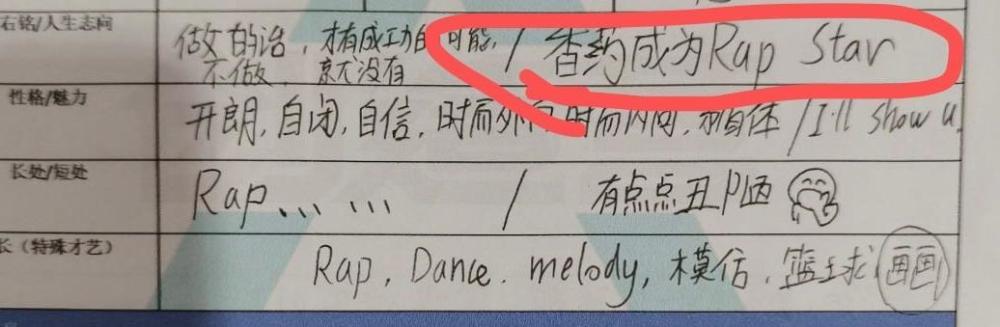 右铭/人生志向
做女的话，才有成功的可能， / 香药成为Rap Star
不做，就没有
性格/魅力
开朗，自闭，自信，时而外向，时而内向， / I'll show u.
长处/短处
Rap、... ... / 有点点丑陋
长（特殊才艺）
Rap, Dance. melody, 模仿，篮球（画画）